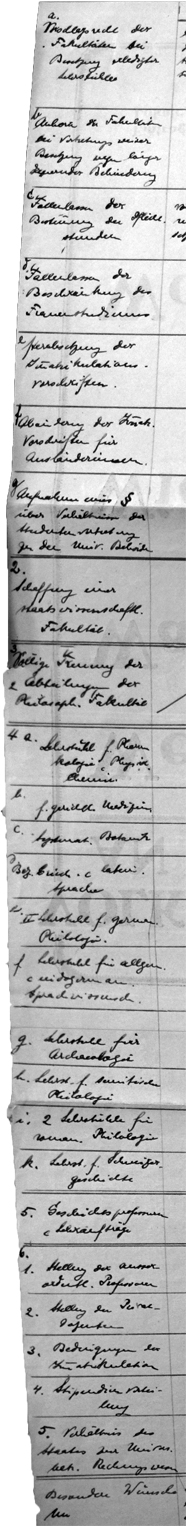 a.
Vorschlagsrecht der
Fakultäten bei
Besetzung erledigter
Lehrstühle
b
der Fakultäten
bei
Besetzung wegen länger
dauernder Behinderung
c
Fallenlassen der
Bestimmung der
stunden
d
Fallenlassen der
Beschränkung des
Frauenstudiums
e Herabsetzung der
Immatrikulations-
vorschriften.
f Abänderung der
Vorschriften für
Ausländerinnen.
g Aufnahme eines §
über Verhältnis der
zu den Univ. Behörden
2.
Schaffung einer
staatswissenschaftl.
Fakultät.
3 Trennung der
2 Abtheilungen der
Philosoph. Fakultät
4 a. Lehrstuhl f. Pharm
kologie Physiol.
Chemie
b.
f. gerichtl. Medizin
c.
Systemat. Botanik
Bez. Griech. latein.
Sprache
e. II Lehrstuhl f. german.
Philologie.
f Lehrstuhl für allgem.
indogerman.
Sprachwissensch.
g. Lehrstuhl für
Archaeologie
h. Lehrst. f. semitische
Philologie
i. 2 Lehrstühle für
roman. Philologie
k. Lehrst. f. Schweizer
geschichte
5. Geschichtsprofessuren
Lehraufträge
6.
1. Stellung der ausser
ordentl. Professoren
2. Stellung der Privat-
dozenten
3. Bedingungen der
Immatrikulation
4. Stipendien
5. Verhältnis des
Staates zur Univers.
betr. Rechnungswesen
Besondere Wünsche